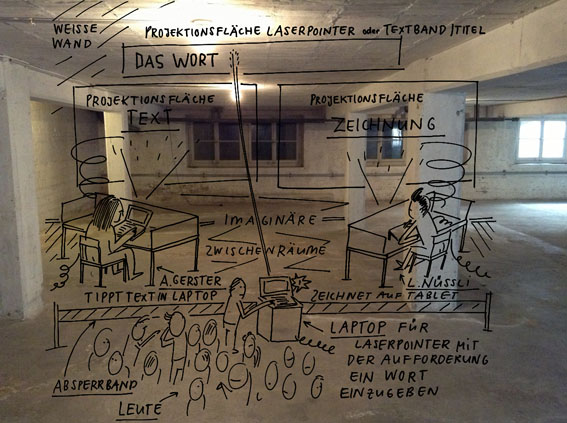 WEISSE
WAND
PROJEKTIONSFLÄCHE LASERPOINTER oder TEXTBAND/TITEL
DAS WORT
PROJEKTIONSFLÄCHE
TEXT
PROJEKTIONSFLÄCHE
ZEICHNUNG
IMAGINÄRE
ZWISCHENRÄUME
A. GERSTER
TIPPT TEXT IN LAPTOP
L. NÜSSLI
ZEICHNET AUF TABLET
LAPTOP FÜR
LASERPOINTER MIT
DER AUFFORDERUNG
EIN WORT
EINZUGEBEN
ABSPERRBAND
LEUTE